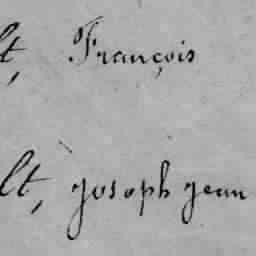 lt, François
lt, Joseph Jean